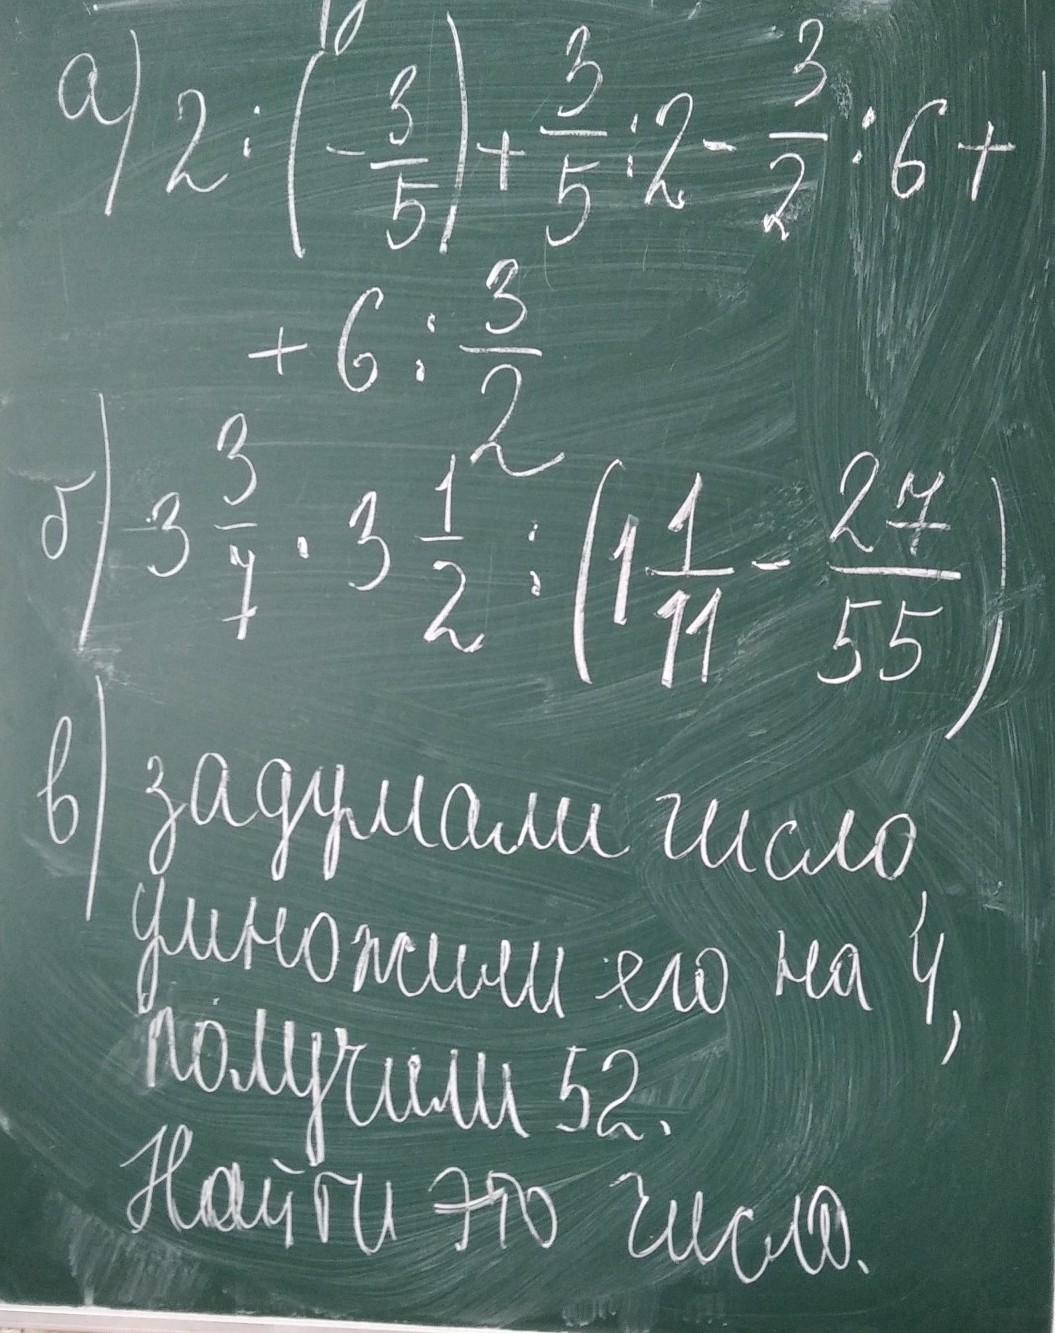 а) 2 : (-3/5) + 3/5 : 2 - 3/2 : 6 +
+ 6 : 3/2
б) 3 3/7 · 3 1/2 : (1 1/11 - 27/55)
в) задумали число,
умножили его на 4,
получили 52.
Найти это число.